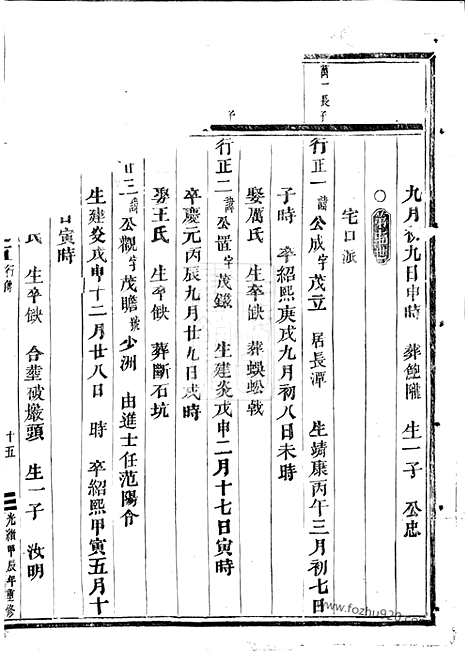 九月初九日申時 葬鮑隴 生一子 公忠
宅口派
萬一長子
行正一 諱公成字茂立 居長潭 生靖康丙午三月初七日
子時 卒紹熙庚戌九月初八日未時
娶厲氏 生卒缺 葬蜈蚣戟
子
行正二 諱公置字茂鎡 生建炎戊申二月十七日寅時
卒慶元丙辰九月廿九日戌時
娶王氏 生卒缺 葬斷石坑
正三 諱公觀字茂瞻號少洲 由進士任范陽令
生建炎戊申十二月廿八日 時 卒紹熙甲寅五月十
日寅時
氏 生卒缺 合葬破巖頭 生一子 汝明
行傳 十五 光緒甲辰年重修
www.fozhu920.com